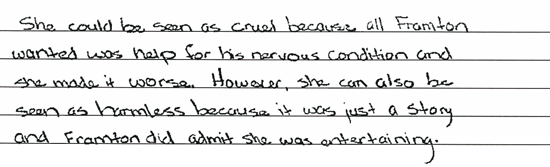 She could be seen as cruel because all Framton
wanted was help for his nervous condition and
she made it worse. However, she can also be
seen as harmless because it was just a story
and Framton did admit she was entertaining.